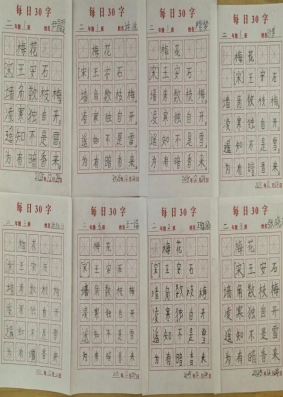 每日30字
二年级
梅花
[宋]王安石
墙角数枝梅
凌寒独自开
遥知不是雪
为有暗香来
每日30字
二年级
梅花
[宋]王安石
墙角数枝梅
凌寒独自开
遥知不是雪
为有暗香来
每日30字
二年级
梅花
[宋]王安石
墙角数枝梅
凌寒独自开
遥知不是雪
为有暗香来
每日30字
二年级
梅花
[宋]王安石
墙角数枝梅
凌寒独自开
遥知不是雪
为有暗香来
每日30字
二年级
梅花
[宋]王安石
墙角数枝梅
凌寒独自开
遥知不是雪
为有暗香来
每日30字
二年级
梅花
[宋]王安石
墙角数枝梅
凌寒独自开
遥知不是雪
为有暗香来
每日30字
二年级
梅花
[宋]王安石
墙角数枝梅
凌寒独自开
遥知不是雪
为有暗香来
每日30字
二年级
梅花
[宋]王安石
墙角数枝梅
凌寒独自开
遥知不是雪
为有暗香来